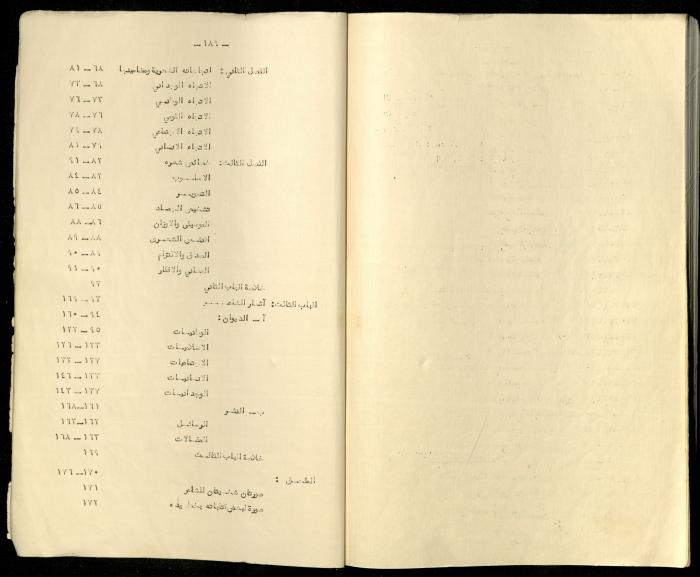 — ١٨٦ —
الفصل الثاني : اتجاهاته الشعرية ومضامينها ٦٨ — ٨١
الاتجاه الوجداني ٦٨ — ٧٣
الاتجاه الوطني ٧٣ — ٧٦
الاتجاه القومي ٧٦ — ٧٨
الاتجاه الاجتماعي ٧٨ — ٧٩
الاتجاه الانساني ٧٩ — ٨١
الفصل الثالث : خصائص شعره ٨٢ — ٩١
الاسلوب ٨٢ — ٨٤
التصوير ٨٤ — ٨٥
تشخيص الجماد ٨٥ — ٨٦
الموسيقى والاوزان ٨٦ — ٨٨
القصص الشعري ٨٨ — ٨٩
الصدق والالتزام ٨٩ — ٩٠
المعاني والافكار ٩٠ — ٩١
خلاصة الباب الثاني ٩٢
الباب الثالث : آثار الشاعر ٩٣ — ١٦٩
آ — الديوان : ٩٤ — ١٦٠
الوطنيات ٩٥ — ١٢٢
الاسلاميات ١٢٣ — ١٢٦
الاجتماعيات ١٢٧ — ١٣٢
الانسانيات
الوجدانيات
ب — النثر ١٦١ — ١٦٨
الرسائل ١٦٢ — ١٦٣
المقالات ١٦٣ — ١٦٨
خلاصة الباب الثالث ١٦٩
الملحق : ١٧٠ — ١٧٦
صورتان شخصيتان للشاعر ١٧١
صورة لبعض كتاباته بخط يده ١٧٢